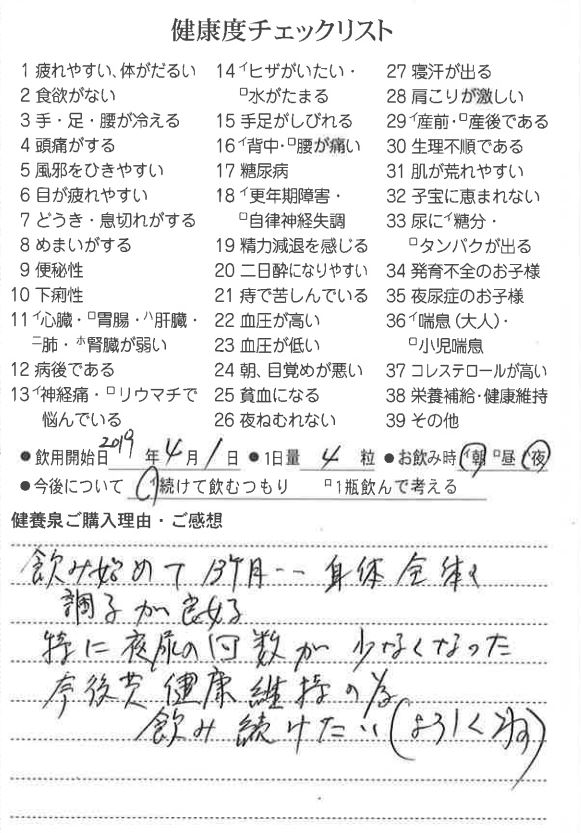 健康度チェックリスト
1 疲れやすい、体がだるい
2 食欲がない
3 手・足・腰が冷える
4 頭痛がする
5 風邪をひきやすい
6 目が疲れやすい
7 どうき・息切れがする
8 めまいがする
9 便秘性
10 下痢性
11 イ心臓・ロ胃腸・ハ肝臓・
ニ肺・ホ腎臓が弱い
12 病後である
13 イ神経痛・ロリウマチで
悩んでいる
14 イヒザがいたい・
ロ水がたまる
15 手足がしびれる
16 イ背中・ロ腰が痛い
17 糖尿病
18 イ更年期障害・
ロ自律神経失調
19 精力減退を感じる
20 二日酔になりやすい
21 痔で苦しんでいる
22 血圧が高い
23 血圧が低い
24 朝、目覚めが悪い
25 貧血になる
26 夜ねむれない
27 寝汗が出る
28 肩こりが激しい
29 イ産前・ロ産後である
30 生理不順である
31 肌が荒れやすい
32 子宝に恵まれない
33 尿にイ糖分・
ロタンパクが出る
34 発育不全のお子様
35 夜尿症のお子様
36 イ喘息(大人)・
ロ小児喘息
37 コレステロールが高い
38 栄養補給・健康維持
39 その他
●飲用開始日 2019 年 4 月 1 日 ●1日量 4 粒 ●お飲み時 イ朝 ロ昼 ハ夜
●今後について イ続けて飲むつもり ロ1瓶飲んで考える
健養泉ご購入理由・ご感想
飲み始めて 13ヶ月-- 身体全体
調子が良好
特に夜尿の回数が 少なくなった
今後 健康維持の
飲み続けたい(よろしく)